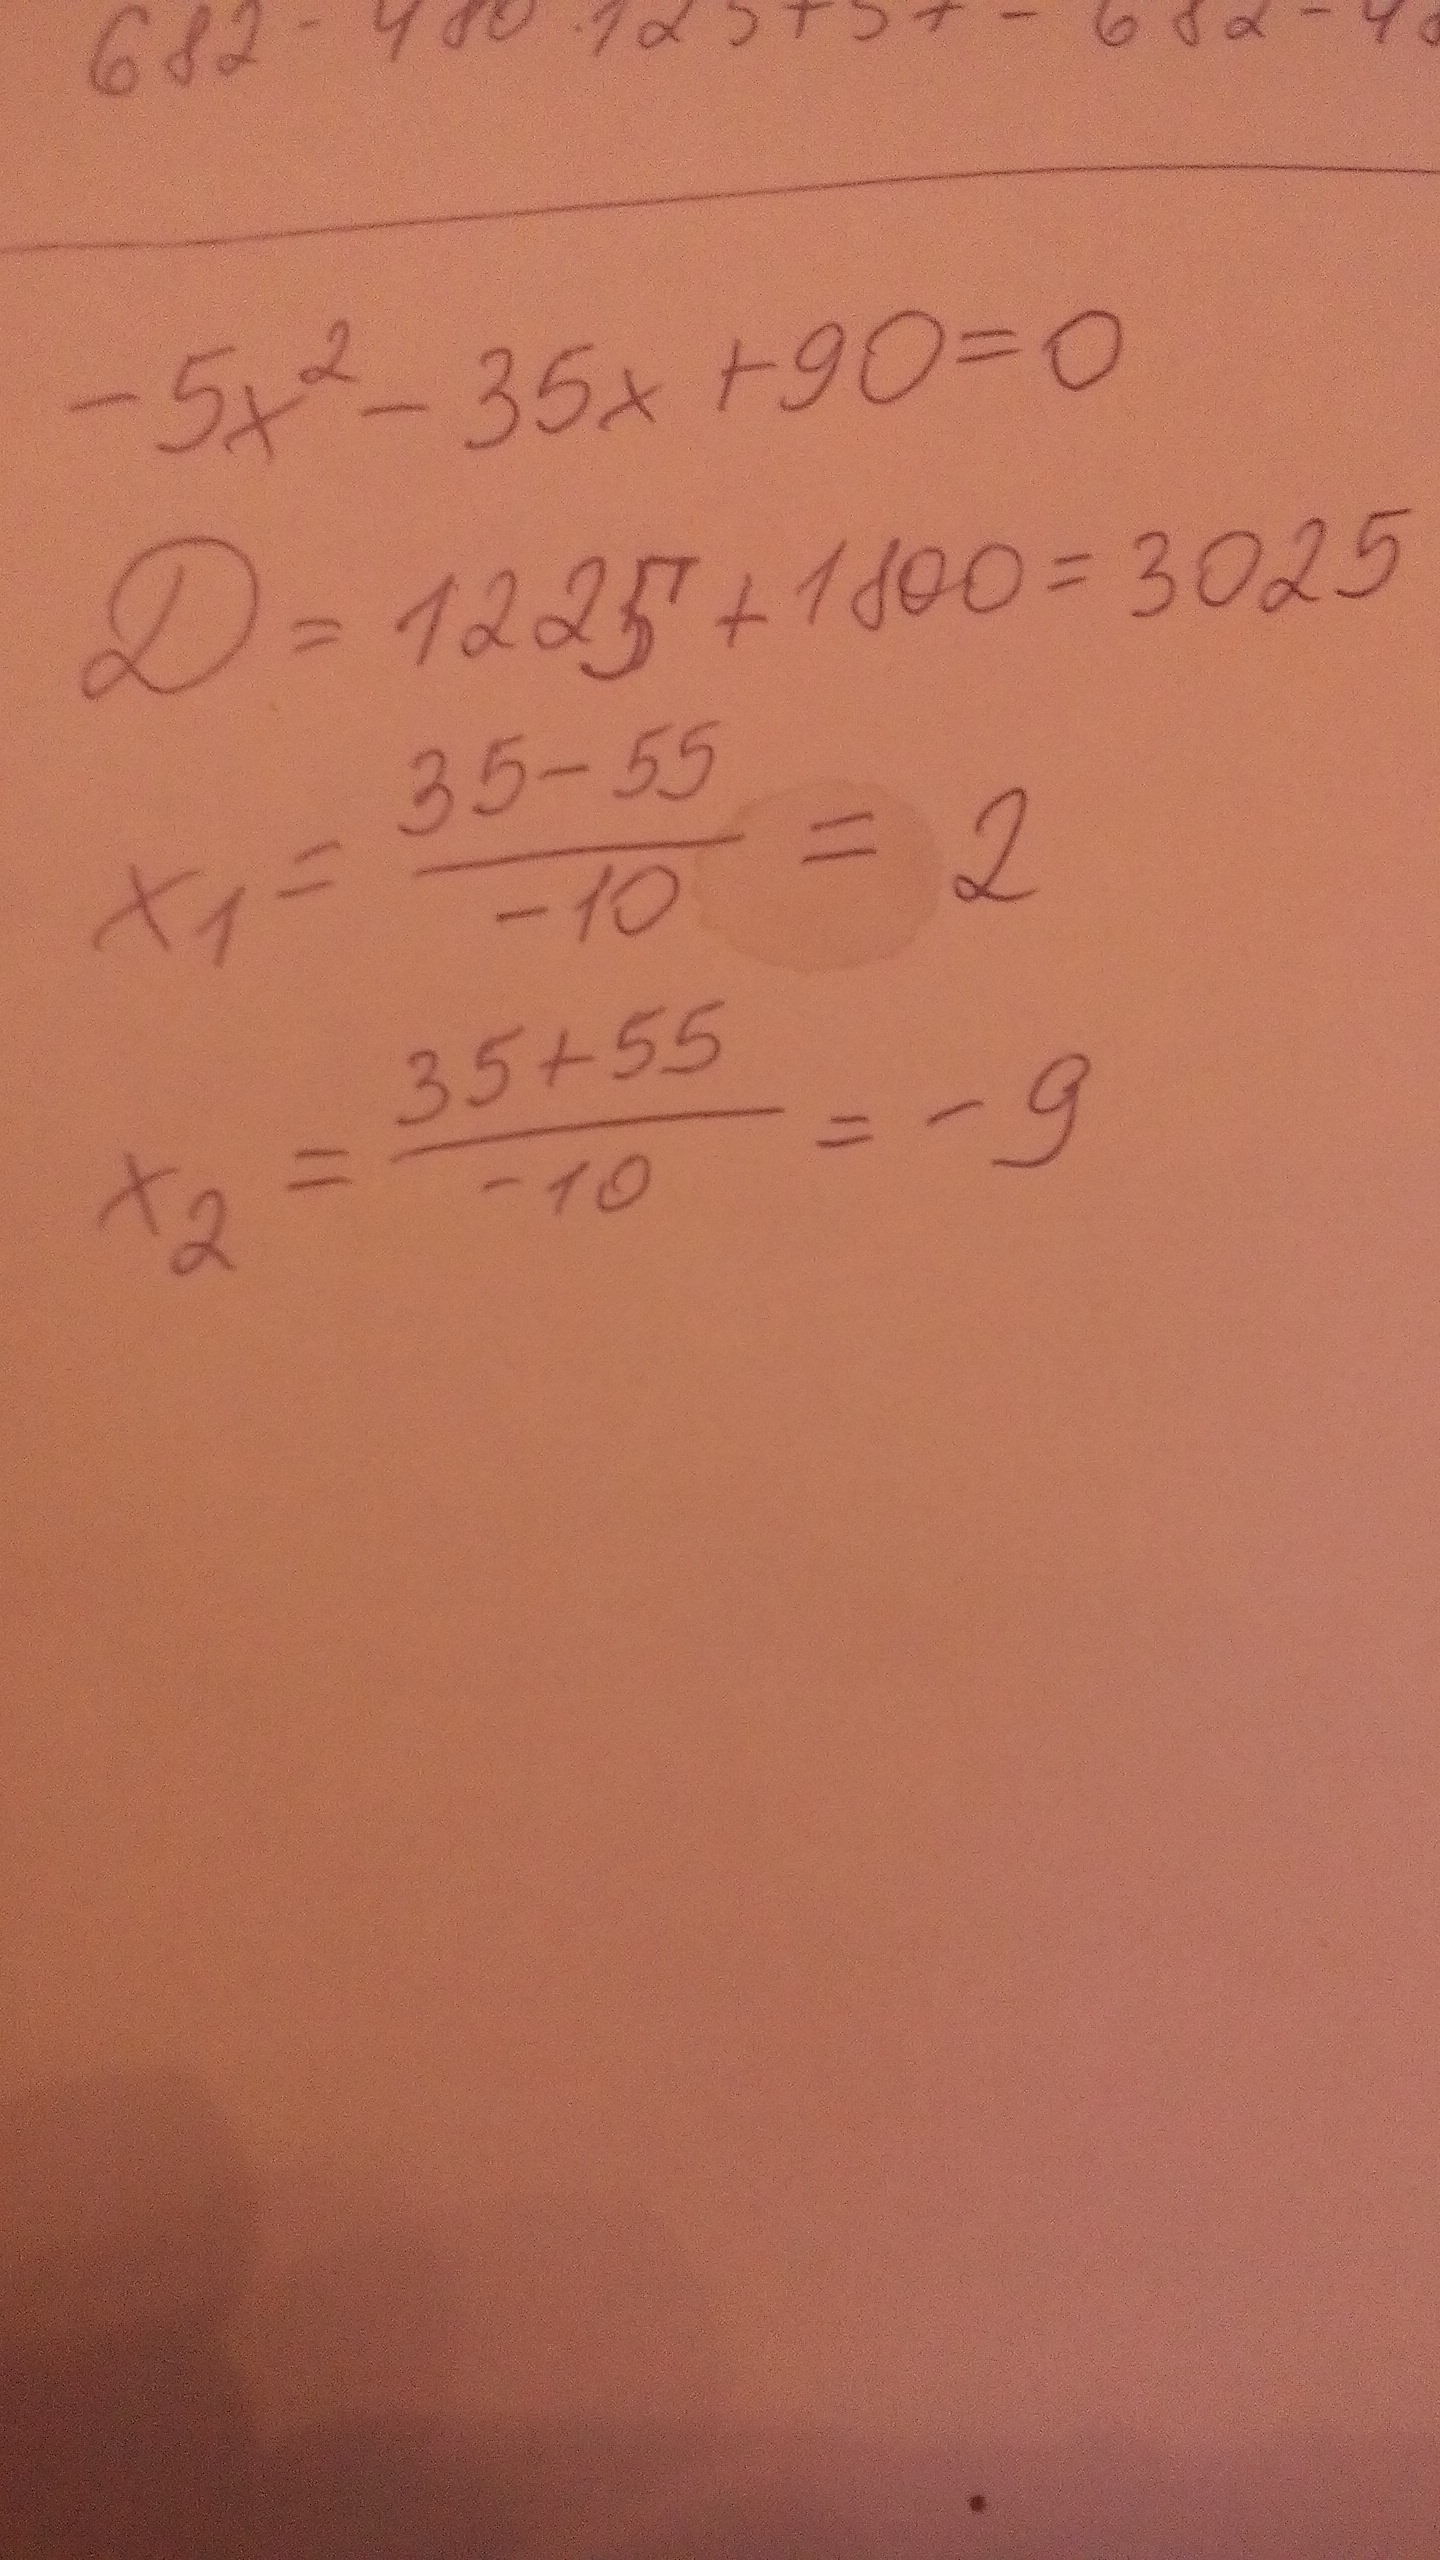 682-480.125+57-682-48
-5x²-35x+90=0
D=1225+1800=3025
x₁=(35-55)/(-10)=2
x₂=(35+55)/(-10)=-9